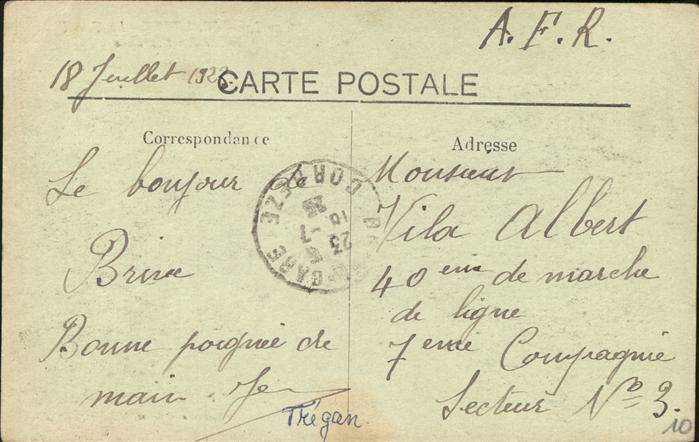 A. F. R.
18 Juillet 1923
CARTE POSTALE
Correspondance
Le bonjour de
Brive
Bonne poignée de
main
Trégan
Adresse
Monsieur
Vila Albert
40 em de marche
de ligne
7 eme Compagnie
Secteur No 3.
10
GARE
CORREZE